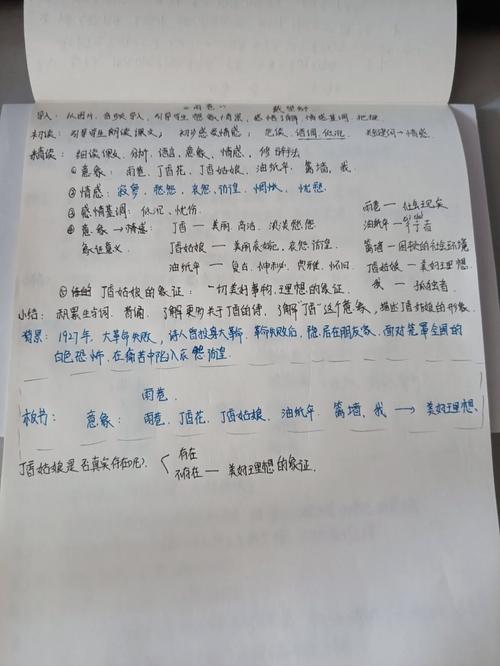 《雨巷》 戴望舒
导入：从图片、音频导入，引导学生想象情景，感悟了解情感基调、把握
初读：引导学生朗读课文，初步感受情感；范读、语调、低沉 关键词问→情感
精读：细读课文、分析、语言、意象、情感、修辞手法
①意象：雨巷、丁香花、丁香姑娘、油纸伞、篱墙、我
②情感：寂寥、愁怨、哀怨、彷徨、惆怅、忧愁
③感情基调：低沉、忧伤 雨巷—社会现实
④意象→情感： 丁香—美丽、高洁、淡淡愁怨 油纸伞—行者
象征意义 丁香姑娘—美丽、哀怨彷徨 篱墙—困扰的社会环境
油纸伞—复古、神秘、典雅、怀旧 丁香姑娘—美好理想
⑤丁香姑娘的象征：一切美好事物、理想的象征 我—孤独者
小结：积累生字词、背诵、了解更多关于丁香的诗，了解"丁香"这个意象，描述丁香姑娘的形象
背景：1927年，大革命失败，诗人曾投身大革命，革命失败后，隐居在朋友家，面对笼罩全国的
白色恐怖，在痛苦中陷入哀怨彷徨
雨巷
板书：意象：雨巷、丁香花、丁香姑娘、油纸伞、篱墙、我→美好理想
丁香姑娘是否真实存在呢？ 存在
不存在—美好理想的象征